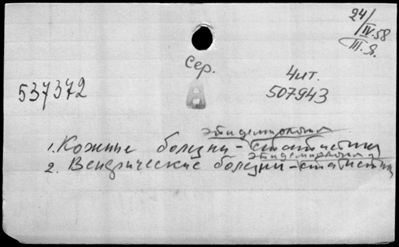 24/IV.58
Ш.Я.
Сер.
А
537372
Чит.
507943
эпидемиология
1. Кожные болезни - статистика
эпидемиология и
2. Венерические болезни - статистика